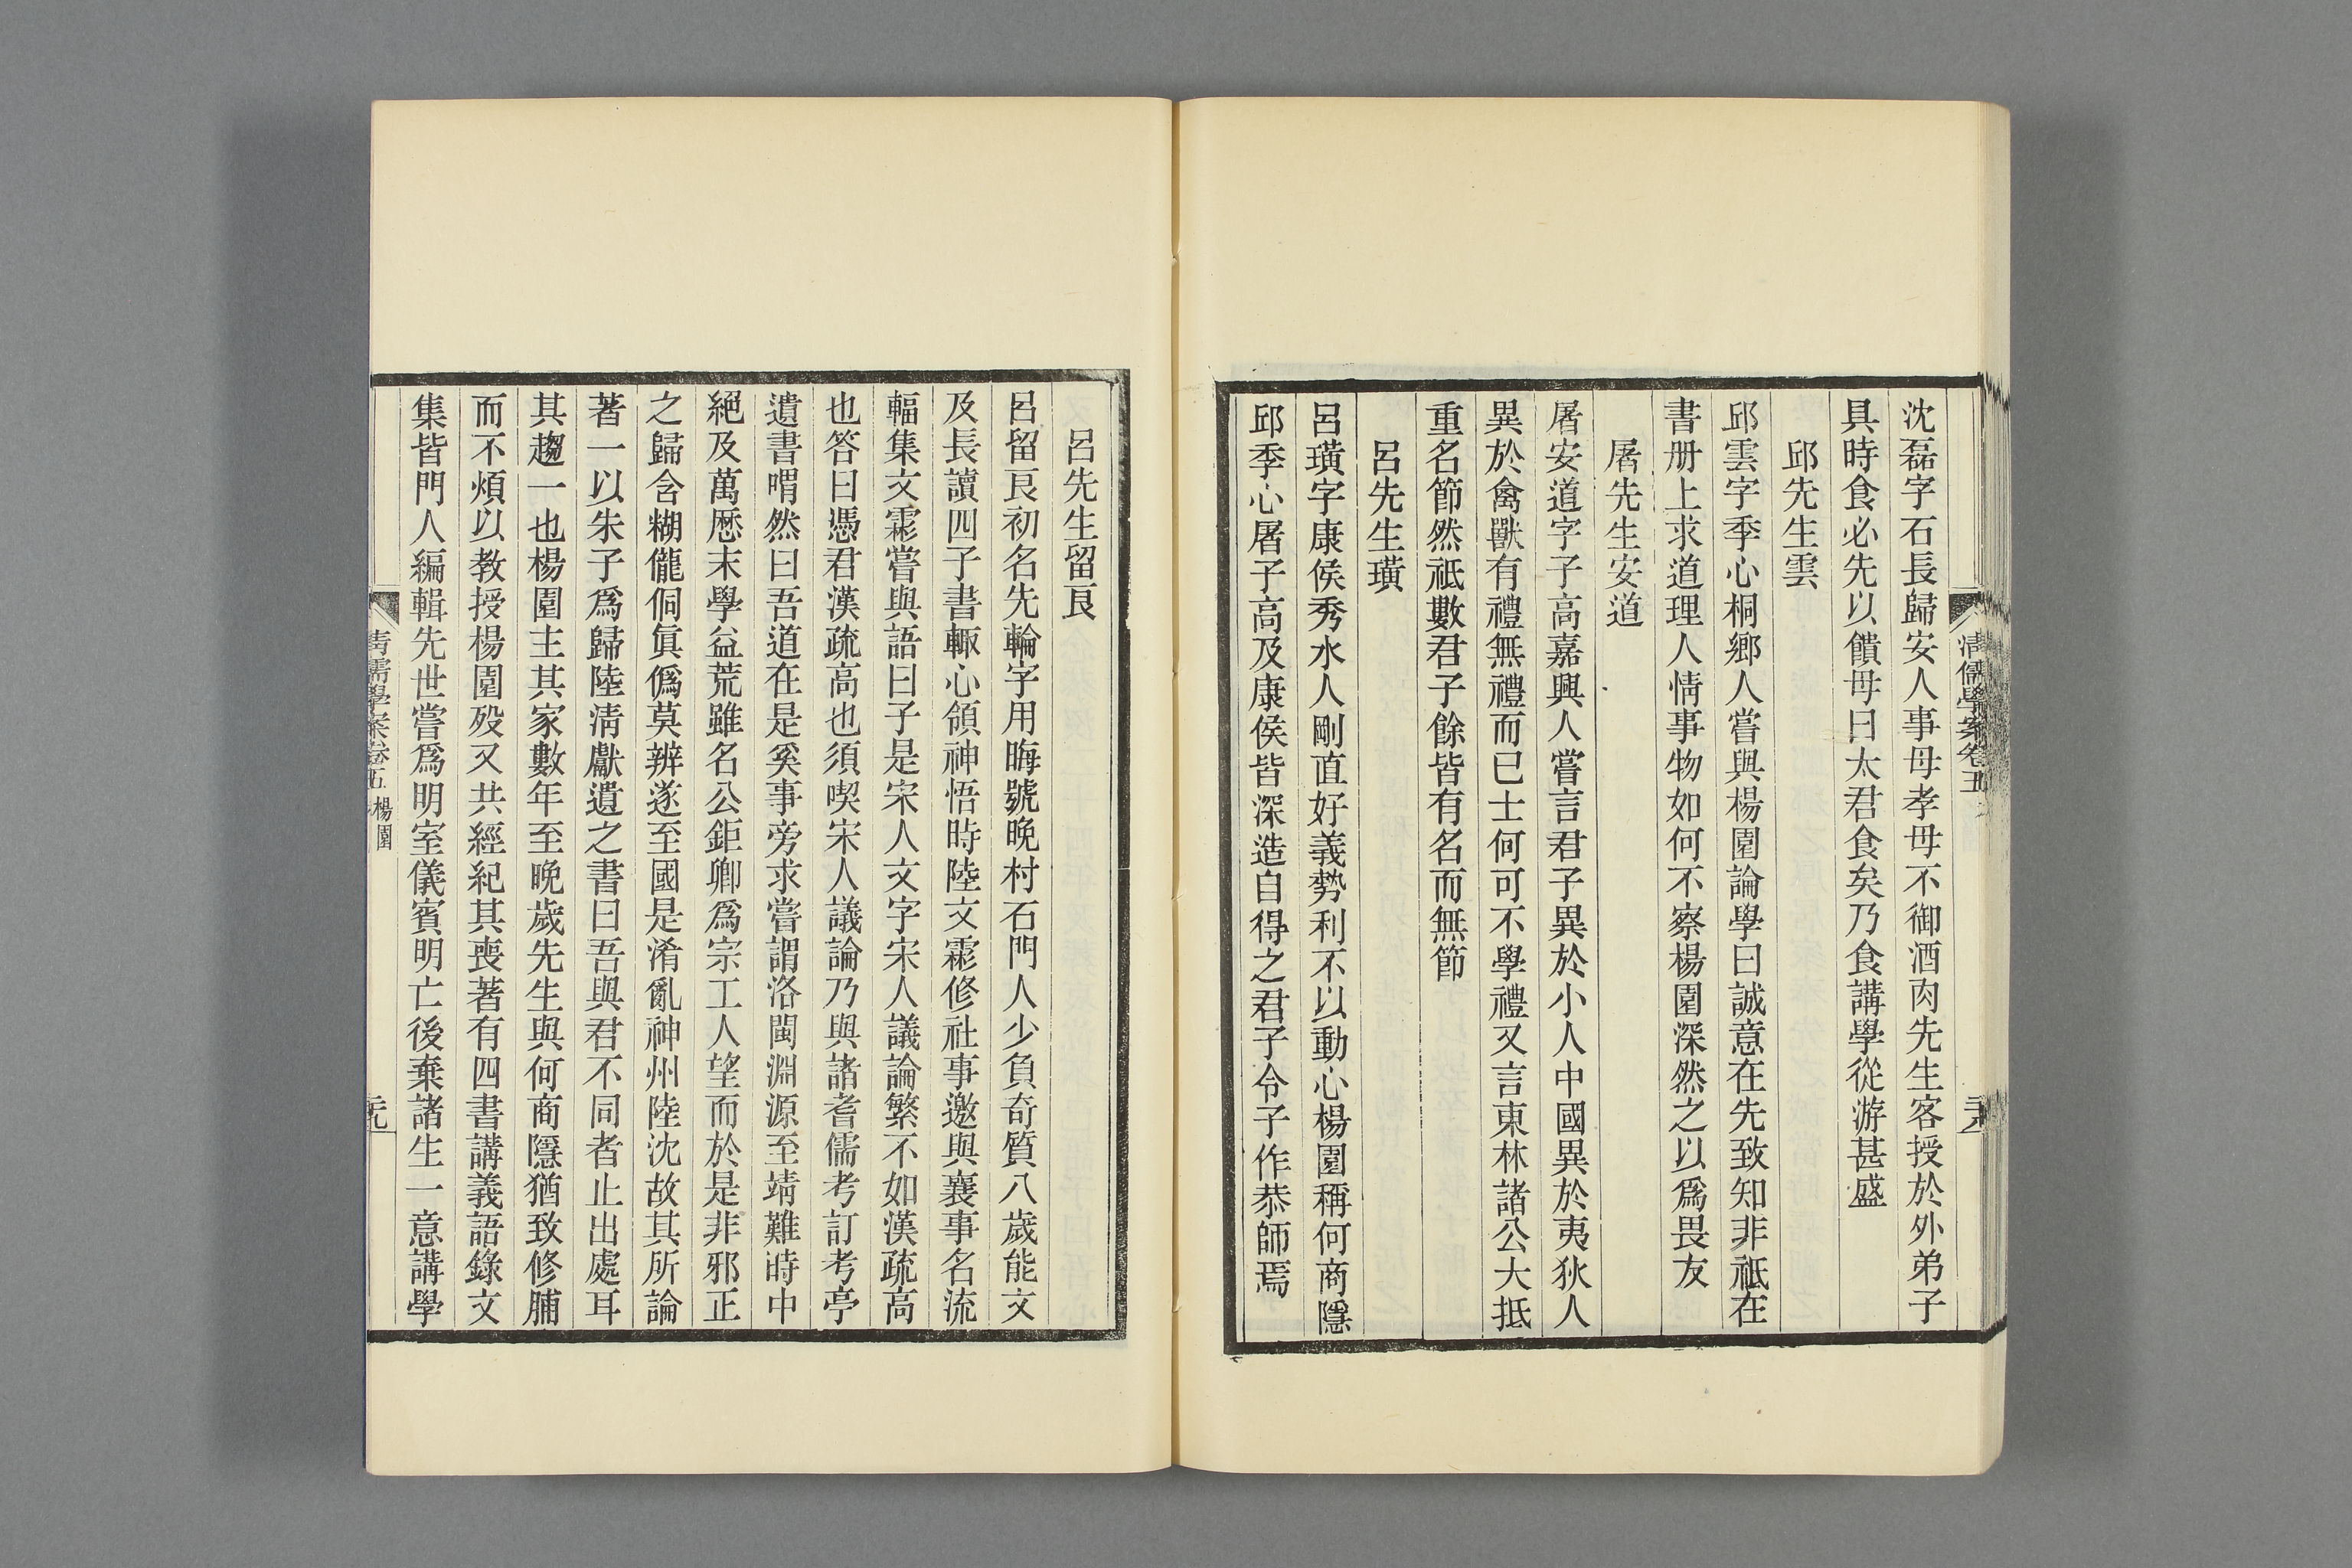 清儒學案卷五
沈磊字石長歸安人事母孝母不御酒肉先生客授於外弟子
具時食必先以饋母曰太君食矣乃食講學從游甚盛
邱先生雲
邱雲字季心桐鄉人嘗與楊園論學曰誠意在先致知非祗在
書册上求道理人情事物如何不察楊園深然之以爲畏友
屠先生安道
屠安道字子高嘉興人嘗言君子異於小人中國異於夷狄人
異於禽獸有禮無禮而已士何可不學禮又言東林諸公大抵
重名節然祗數君子餘皆有名而無節
呂先生璜
呂璜字康侯秀水人剛直好義勢利不以動心楊園稱何商隱
邱季心屠子高及康侯皆深造自得之君子令子作恭師焉
呂先生留良
呂留良初名先輪字用晦號晚村石門人少負奇質八歲能文
及長讀四子書輒心領神悟時陸文霦修社事邀與襄事名流
輻集文霦嘗與語曰子是宋人文字宋人議論繁不如漢疏高
也答曰憑君漢疏高也須喫宋人議論乃與諸耆儒考訂考亭
遺書喟然曰吾道在是奚事旁求嘗謂洛閩淵源至靖難時中
絕及萬厯末學益荒雖名公鉅卿爲宗工人望而於是非邪正
之歸含糊儱侗眞僞莫辨遂至國是淆亂神州陸沈故其所論
著一以朱子爲歸陸淸獻遺之書曰吾與君不同者止出處耳
其趨一也楊園主其家數年至晚歲先生與何商隱猶致修脯
而不煩以教授楊園歿又共經紀其喪著有四書講義語錄文
集皆門人編輯先世嘗爲明室儀賓明亡後棄諸生一意講學
清儒學案卷五 楊園
二十九